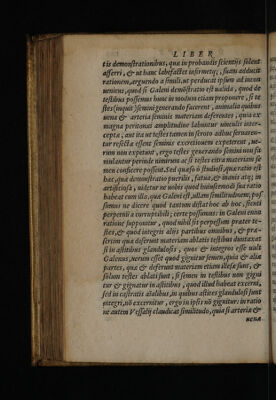 LIBER
tis demonstrationibus, quæ in probandis scientijs solent
afferri, & ut hanc labefactet infirmetq;, suam adducit
rationem, arguendo à simili, ut perducat ipsum ad incon
ueniens, quod si Galeni demõstratio est ualida, quod de
testibus possemus hunc in modum etiam proponere, si te
stes (inquit) semini generando facerent, animalia quibus
uenæ & arteria seminis materiam deferentes, quia ex
magna peritonæi amplitudine labuntur uinculis inter
cepta, aut ita ut testes tamen in scroto adhuc seruaren-
tur resecta essent seminis excretionem expeterent, ue-
rùm non expetunt, ergo testes generando semini non fa
mulantur perinde nimirum ac si testes citra materiam se
men conficere possent. Sed quæso ò studiosi, quæ ratio est
hæc, quæ demonstratio puerilis, fatua, & inanis absq; in
artificiosa, uidetur ne uobis quod huiuscemodi sua ratio
habeat cum illa, quæ Galeni est, ullam similitudinem, pos
sumus ne dicere quod tantum distat hoc ab hoc, scienti
perpenti à corruptibili; certe possumus: in Galeni enim
ratione supponitur, quod nihil sit perpessum præter te-
stes, & quod integris alijs partibus omnibus, & præ-
sertim quæ deferunt materiam ablatis testibus maneat.
si in astitibus glandulosis, quod & integros esse uult
Galenus, uerum esset quod gignitur semen, quia & aliæ
partes, quæ & deferunt materiam etiam illæsæ sunt, &
solùm testes ablati sunt, si semen in testibus non gigni
tur & gignatur in astitibus, quod illud habeat excerni,
sed in castratis aĩalibus, in quibus astites glandulosi sunt
integri, nõ excernitur, ergo in ipsis nõ gignitur: in ratio
ne autem Vessalij claudicat similitudo, quia si arteria &
uenæ